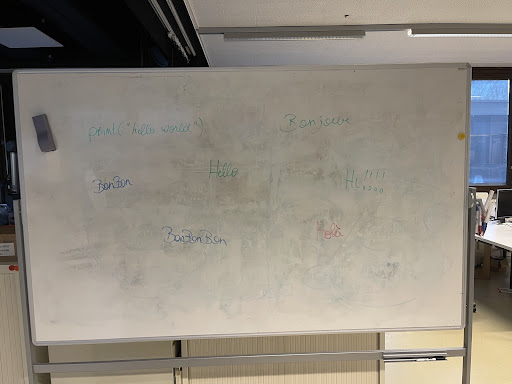 print("hello world")
Bonsoир
Hello
Hi!!!!
BonBon
BonBonBon
Holà